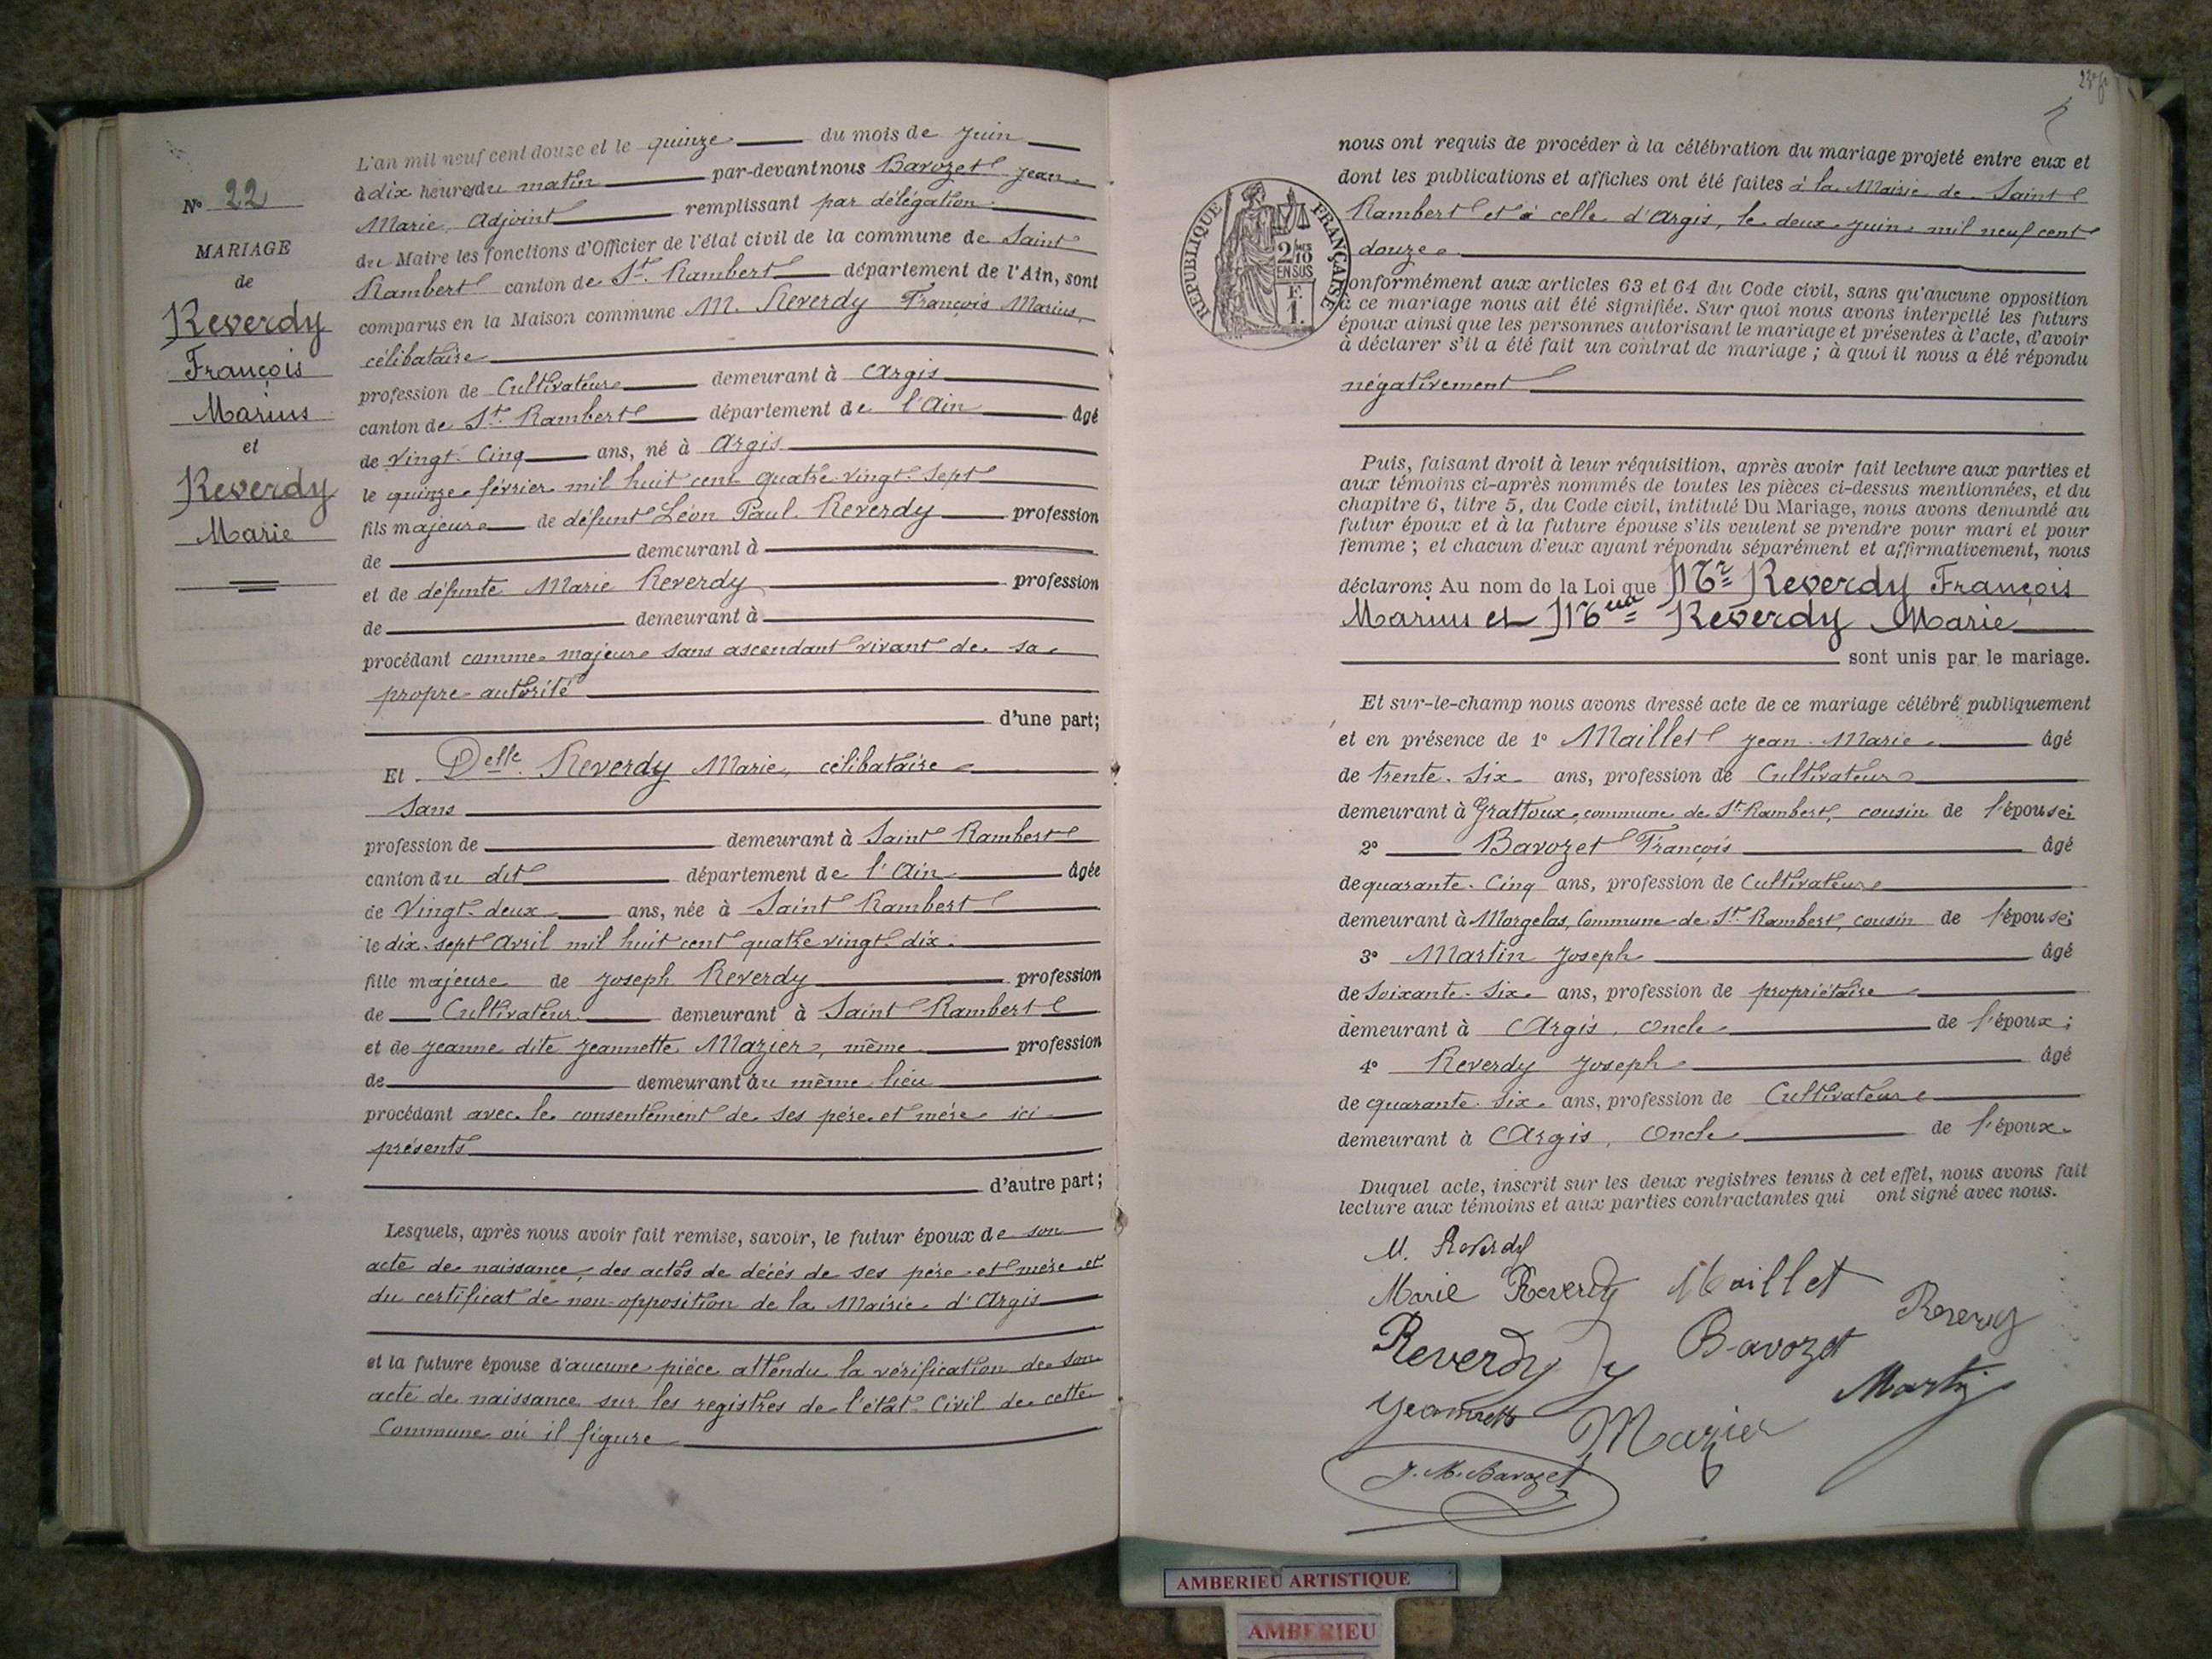 N° 22
MARIAGE
de
Reverdy
François
Marius
et
Reverdy
Marie
L'an mil neuf cent douze et le quinze du mois de Juin
à dix heures du matin par-devant nous Bavozet Jean
Marie, Adjoint remplissant par délégation
du Maire les fonctions d'Officier de l'état civil de la commune de Saint
Rambert canton de St. Rambert département de l'Ain, sont
comparus en la Maison commune M. Reverdy François Marius,
célibataire
profession de Cultivateur demeurant à Argis
canton de St. Rambert département de l'Ain âgé
de vingt-cinq ans, né à Argis
le quinze février mil huit cent quatre-vingt-sept
fils majeur de défunt Léon Paul Reverdy profession
de demeurant à
et de défunte Marie Reverdy profession
de demeurant à
procédant comme majeur sans ascendant vivant de sa
propre autorité
d'une part;
Et Delle Reverdy Marie, célibataire
sans
profession de demeurant à Saint Rambert
canton du dit département de l'Ain âgée
de Vingt-deux ans, née à Saint Rambert
le dix-sept Avril mil huit cent quatre vingt dix
fille majeure de Joseph Reverdy profession
de Cultivateur demeurant à Saint Rambert
et de Jeanne dite Jeannette Mazier, même profession
de demeurant au même lieu
procédant avec le consentement de ses père et mère ici
présents
d'autre part;
Lesquels, après nous avoir fait remise, savoir, le futur époux de son
acte de naissance, des actes de décés de ses père et mère et
du certificat de non-opposition de la Mairie d'Argis
et la future épouse d'aucune pièce attendu la vérification de son
acte de naissance sur les registres de l'état-Civil de cette
Commune où il figure
nous ont requis de procéder à la célébration du mariage projeté entre eux et
dont les publications et affiches ont été faites à la Mairie de Saint
Rambert et à celle d'Argis, le deux juin mil neuf cent
douze
RÉPUBLIQUE FRANÇAISE
2/10
EN SUS
F.
1.
conformément aux articles 63 et 64 du Code civil, sans qu'aucune opposition
à ce mariage nous ait été signifiée. Sur quoi nous avons interpellé les futurs
époux ainsi que les personnes autorisant le mariage et présentes à l'acte, d'avoir
à déclarer s'il a été fait un contrat de mariage ; à quoi il nous a été répondu
négativement
Puis, faisant droit à leur réquisition, après avoir fait lecture aux parties et
aux témoins ci-après nommés de toutes les pièces ci-dessus mentionnées, et du
chapitre 6, titre 5, du Code civil, intitulé Du Mariage, nous avons demandé au
futur époux et à la future épouse s'ils veulent se prendre pour mari et pour
femme ; et chacun d'eux ayant répondu séparément et affirmativement, nous
déclarons Au nom de la Loi que Mr Reverdy François
Marius et Melle Reverdy Marie
sont unis par le mariage.
Et sur-le-champ nous avons dressé acte de ce mariage célébré publiquement
et en présence de 1° Maillet Jean-Marie âgé
de trente-six ans, profession de Cultivateur
demeurant à Grattoux, commune de St. Rambert, cousin de l'épouse;
2° Bavozet François âgé
de quarante-Cinq ans, profession de Cultivateur
demeurant à Morgelas, Commune de St. Rambert, cousin de l'épouse;
3° Martin Joseph âgé
de Soixante-Six ans, profession de propriétaire
demeurant à Argis, oncle de l'époux;
4° Reverdy Joseph âgé
de quarante-six ans, profession de Cultivateur
demeurant à Argis, Oncle de l'époux
Duquel acte, inscrit sur les deux registres tenus à cet effet, nous avons fait
lecture aux témoins et aux parties contractantes qui ont signé avec nous.
M. Reverdy
Marie Reverdy Maillet
Reverdy J Bavozet Reverdy
Jeannette Mazier Martin
J. M. Bavozet
AMBERIEU ARTISTIQUE
AMBERIEU